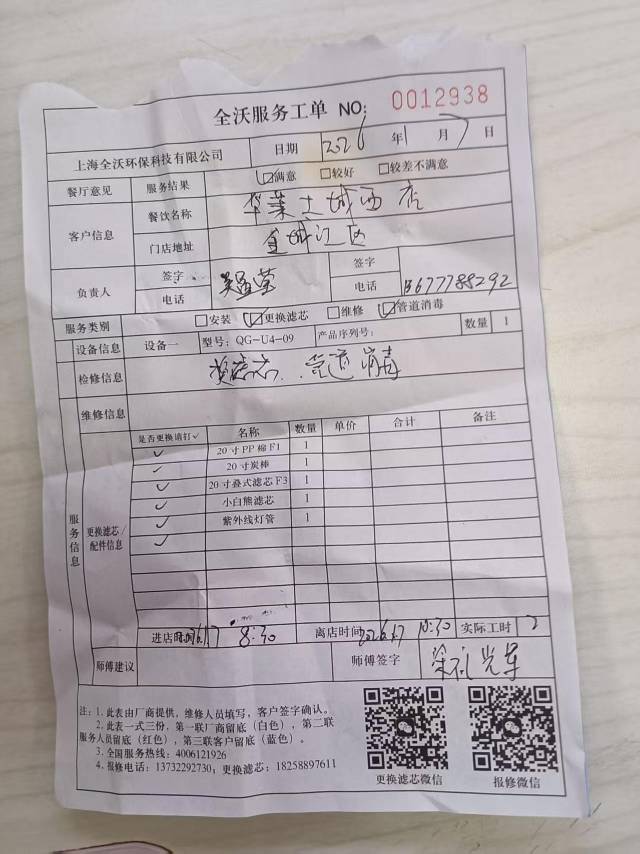 全沃服务工单 NO: 0012938
上海全沃环保科技有限公司 日期 2026 年 1 月 7 日
餐厅意见 服务结果 ☑满意 □较好 □较差不满意
客户信息 餐饮名称 华莱士城西店
门店地址 金城江区
负责人 签字 签字
电话 电话 13677788292
服务类别 □安装 ☑更换滤芯 □维修 ☑管道消毒
设备信息 设备一 型号: QG-U4-09 产品序列号: 数量 1
检修信息 换滤芯、管道消毒
维修信息
服务信息 更换滤芯/配件信息
是否更换请打✓ 名称 数量 单价 合计 备注
✓ 20寸PP棉F1 1
✓ 20寸炭棒 1
✓ 20寸叠式滤芯F3 1
✓ 小白熊滤芯 1
✓ 紫外线灯管 1
✓
进店时间 8:30 离店时间 2026.1.7 10:30 实际工时 2
师傅建议 师傅签字
注: 1. 此表由厂商提供，维修人员填写，客户签字确认。
2. 此表一式三份，第一联厂商留底（白色），第二联
服务人员留底（红色），第三联客户留底（蓝色）。
3. 全国服务热线: 4006121926
4. 报修电话: 13732292730; 更换滤芯: 18258897611
更换滤芯微信 报修微信